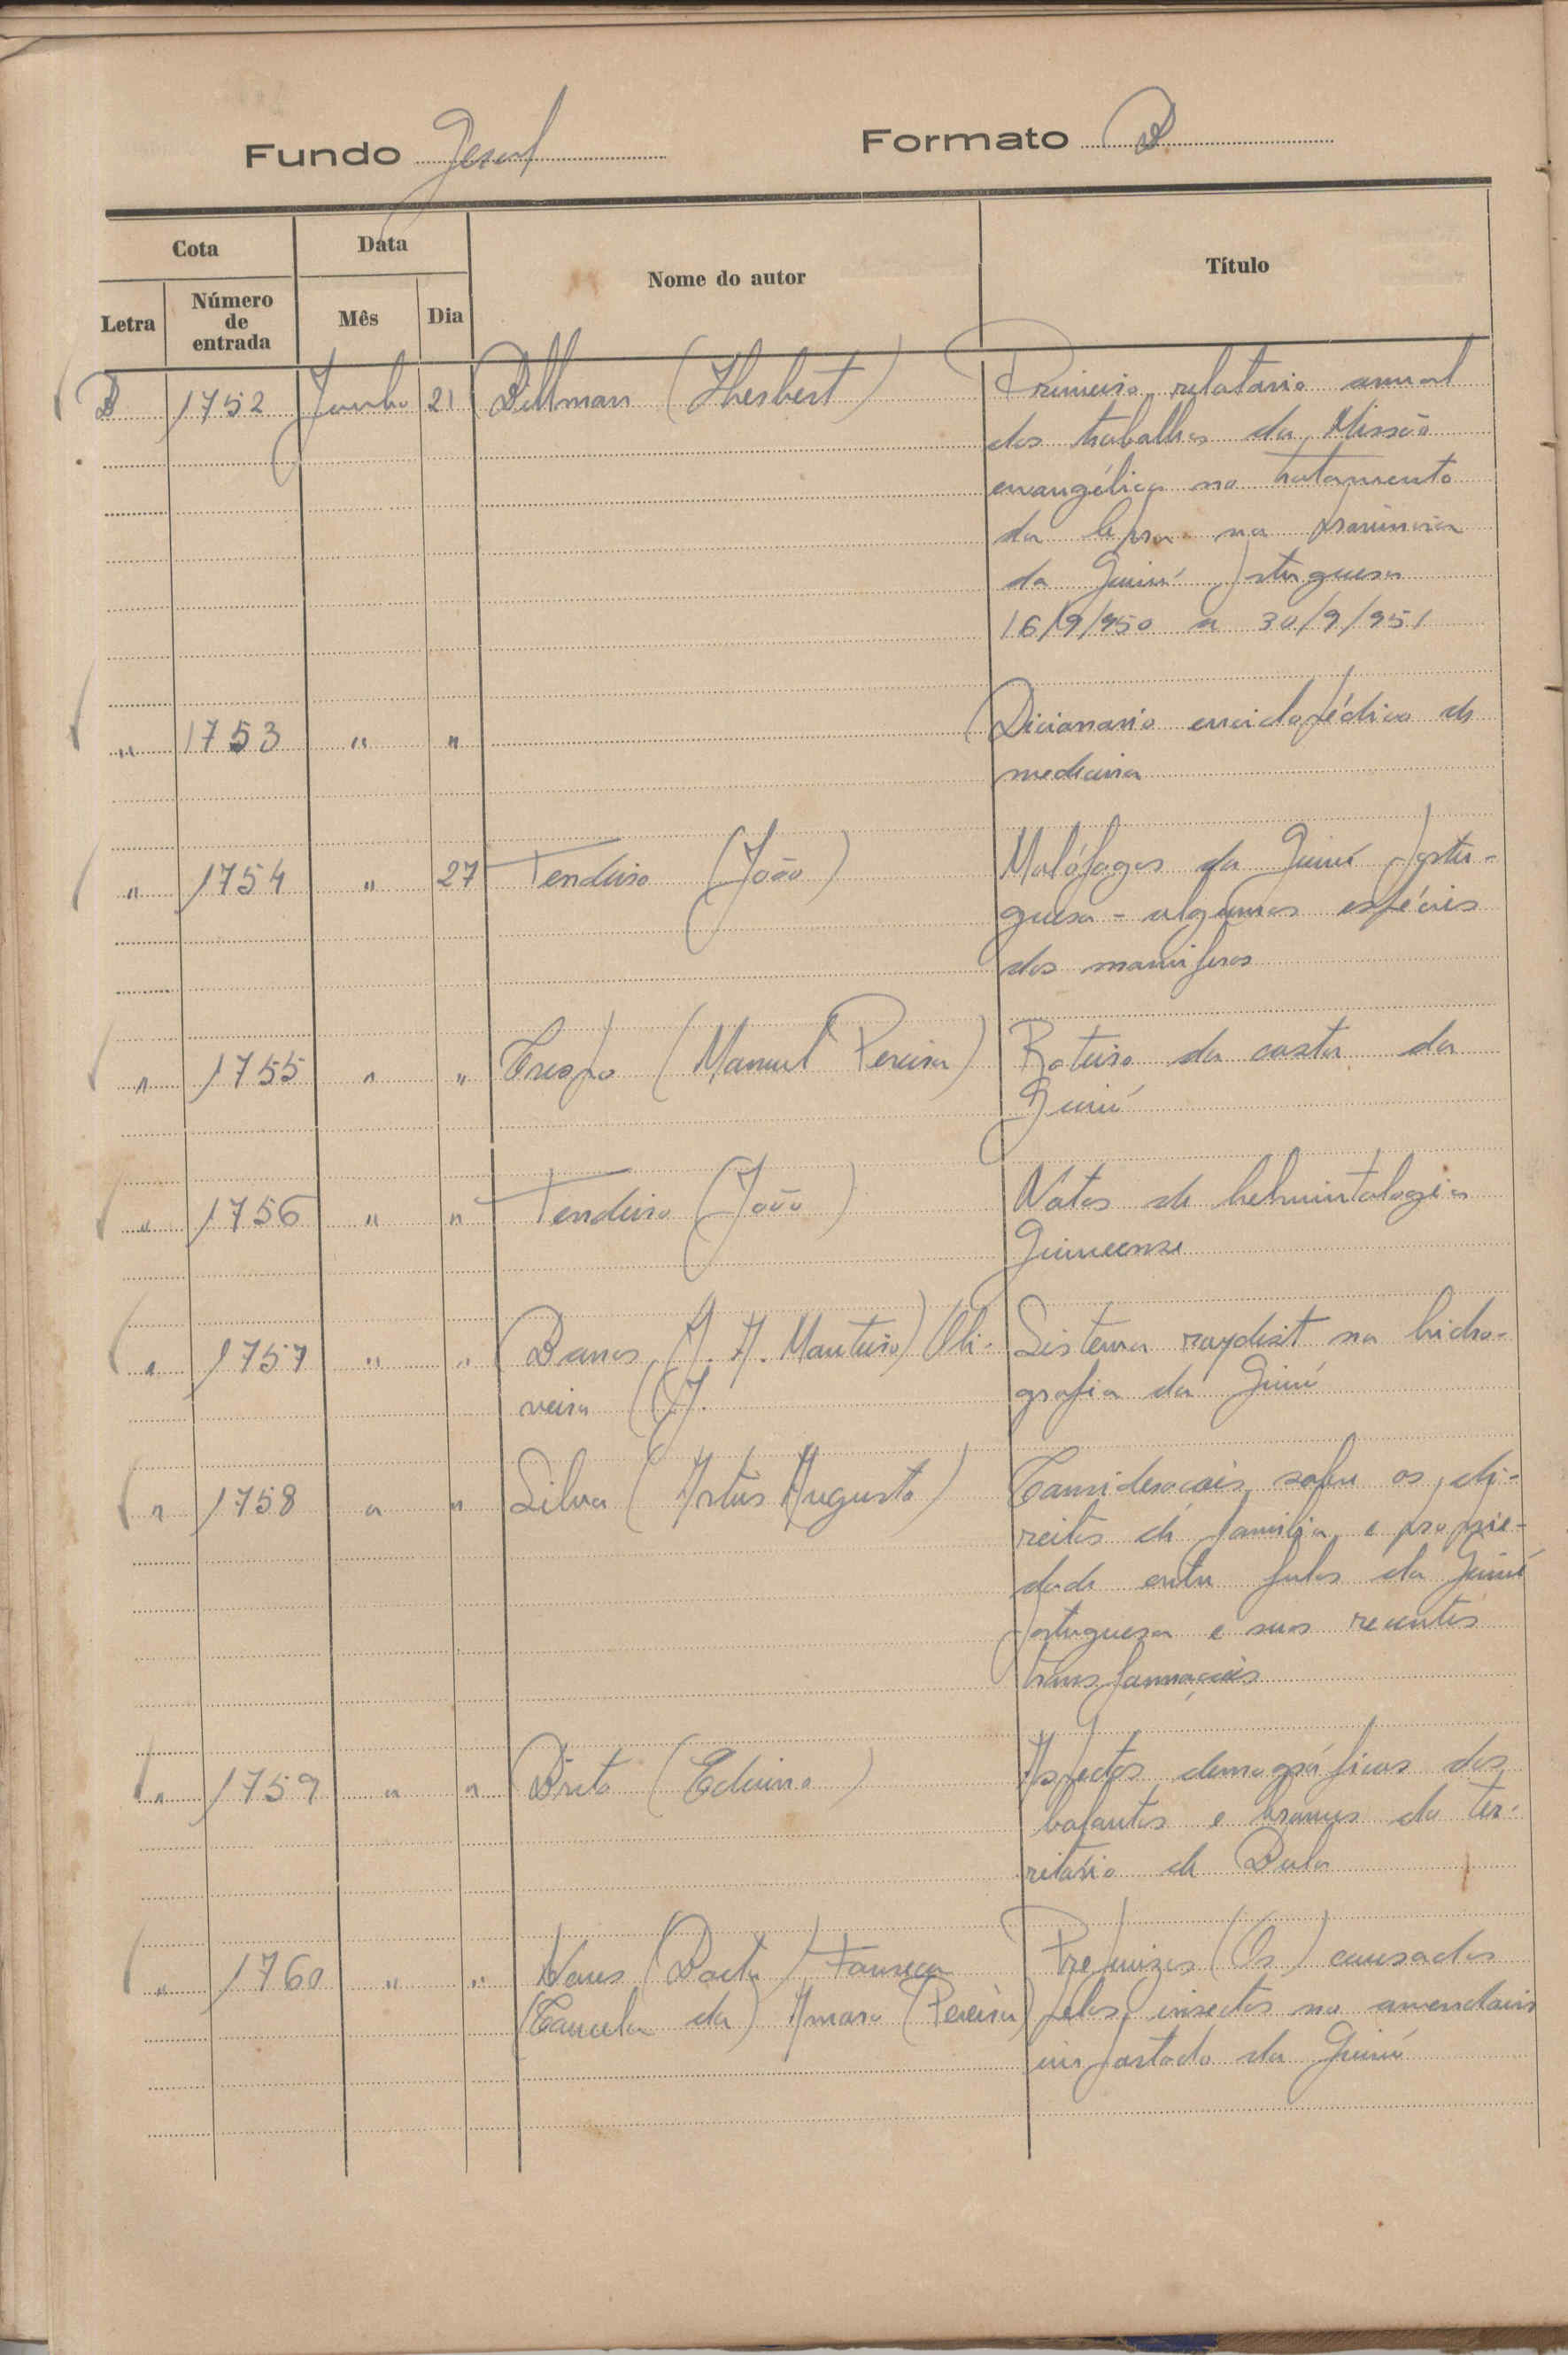 Fundo Geral Formato B
Cota Data Nome do autor Título
Letra Número de entrada Mês Dia
B 1752 Junho 21 Billman (Hhesbert) Primeiro relatorio anual
dos trabalhos da Missão
evangélica no tratamento
da lepra na provincia
da Guiné portuguesa
16/9/950 a 30/9/951
" 1753 " " Dicionario enciclopédico de
medicina
" 1754 " 27 Tendeiro (João) Malófagos da Guiné portu-
guesa - algumas espécies
dos mamiferos
" 1755 " " Crespo (Manuel Pereira) Roteiro da costa da
Guiné
" 1756 " " Tendeiro (João) Notas de helmintologia
Guineense
" 1757 " " Barros (J. A. Monteiro) Oli- Sistema raydist na hidro-
veira (J. grafia da Guiné
" 1758 " " Silva (Artur Augusto) Consideracois sobre os di-
reitos de familia e proprie-
dade entre fulas da Guiné
portuguesa e suas recentes
transformaçois
" 1759 " " Brito (Eduino) Aspectos demográficos dos
balantas e brames do ter-
ritório de Bula
" 1760 " " (Bacta) Fonseca Prejuizos (Os) causados
(Cancela da) Amaro (Pereira) pelos insectos na amendoim
importado da Guiné